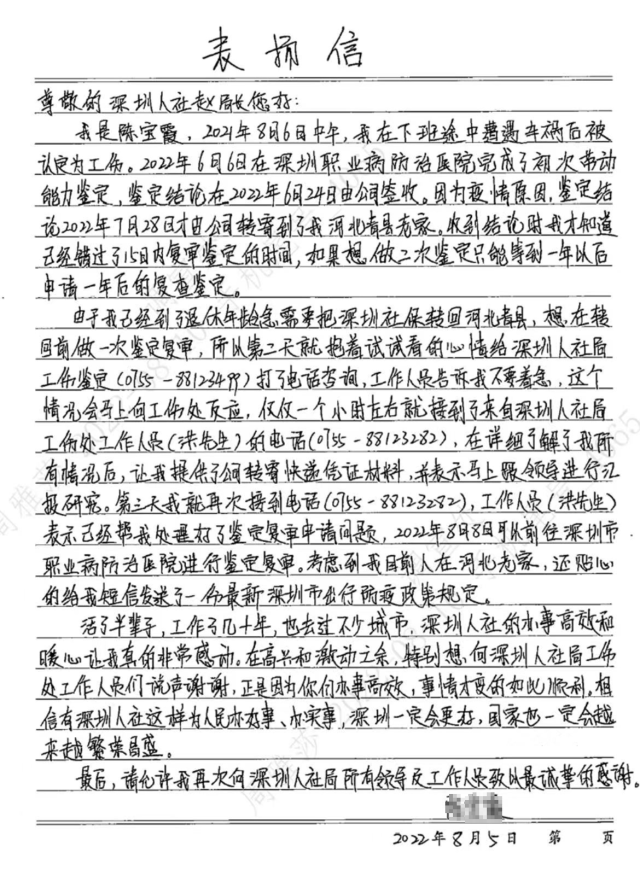 表扬信
尊敬的深圳人社赵局长您好：
我是陈宝霞，2021年8月6日中午，我在下班途中遭遇车祸后被
认定为工伤。2022年6月6日在深圳职业病防治医院完成了初次劳动
能力鉴定，鉴定结论在2022年6月24日由公司签收。因为疫情原因，鉴定结
论2022年7月28日才由公司转寄到了我河北青县老家。收到结论时我才知道
已经错过了15日内复审鉴定的时间，如果想做二次鉴定只能等到一年以后
申请一年后的复查鉴定。
由于我已经到了退休年龄急需要把深圳社保转回河北青县，想在转
回前做一次鉴定复审，所以第二天就抱着试试看的心情给深圳人社局
工伤鉴定（0755-88123499）打了电话咨询，工作人员告诉我不要着急，这个
情况会马上向工伤处反应，仅仅一个小时左右就接到了来自深圳人社局
工伤处工作人员（洪先生）的电话（0755-88123282），在详细了解了我所
有情况后，让我提供了公司转寄快递凭证材料，并表示马上跟领导进行汇
报研究。第三天我就再次接到电话（0755-88123282），工作人员（洪先生）
表示已经帮我处理好了鉴定复审申请问题，2022年8月8日可以前往深圳市
职业病防治医院进行鉴定复审。考虑到我目前人在河北老家，还贴心
的给我短信发送了一份最新深圳市出行防疫政策规定。
活了半辈子，工作了几十年，也去过不少城市，深圳人社的办事高效和
暖心让我真的非常感动。在高兴和激动之余，特别想向深圳人社局工伤
处工作人员们说声谢谢，正是因为你们办事高效，事情才变的如此顺利。相
信有深圳人社这样为人民办好事、办实事，深圳一定会更好，国家也一定会越
来越繁荣昌盛。
最后，请允许我再次向深圳人社局所有领导及工作人员致以最诚挚的感谢。
2022年8月5日 第 页